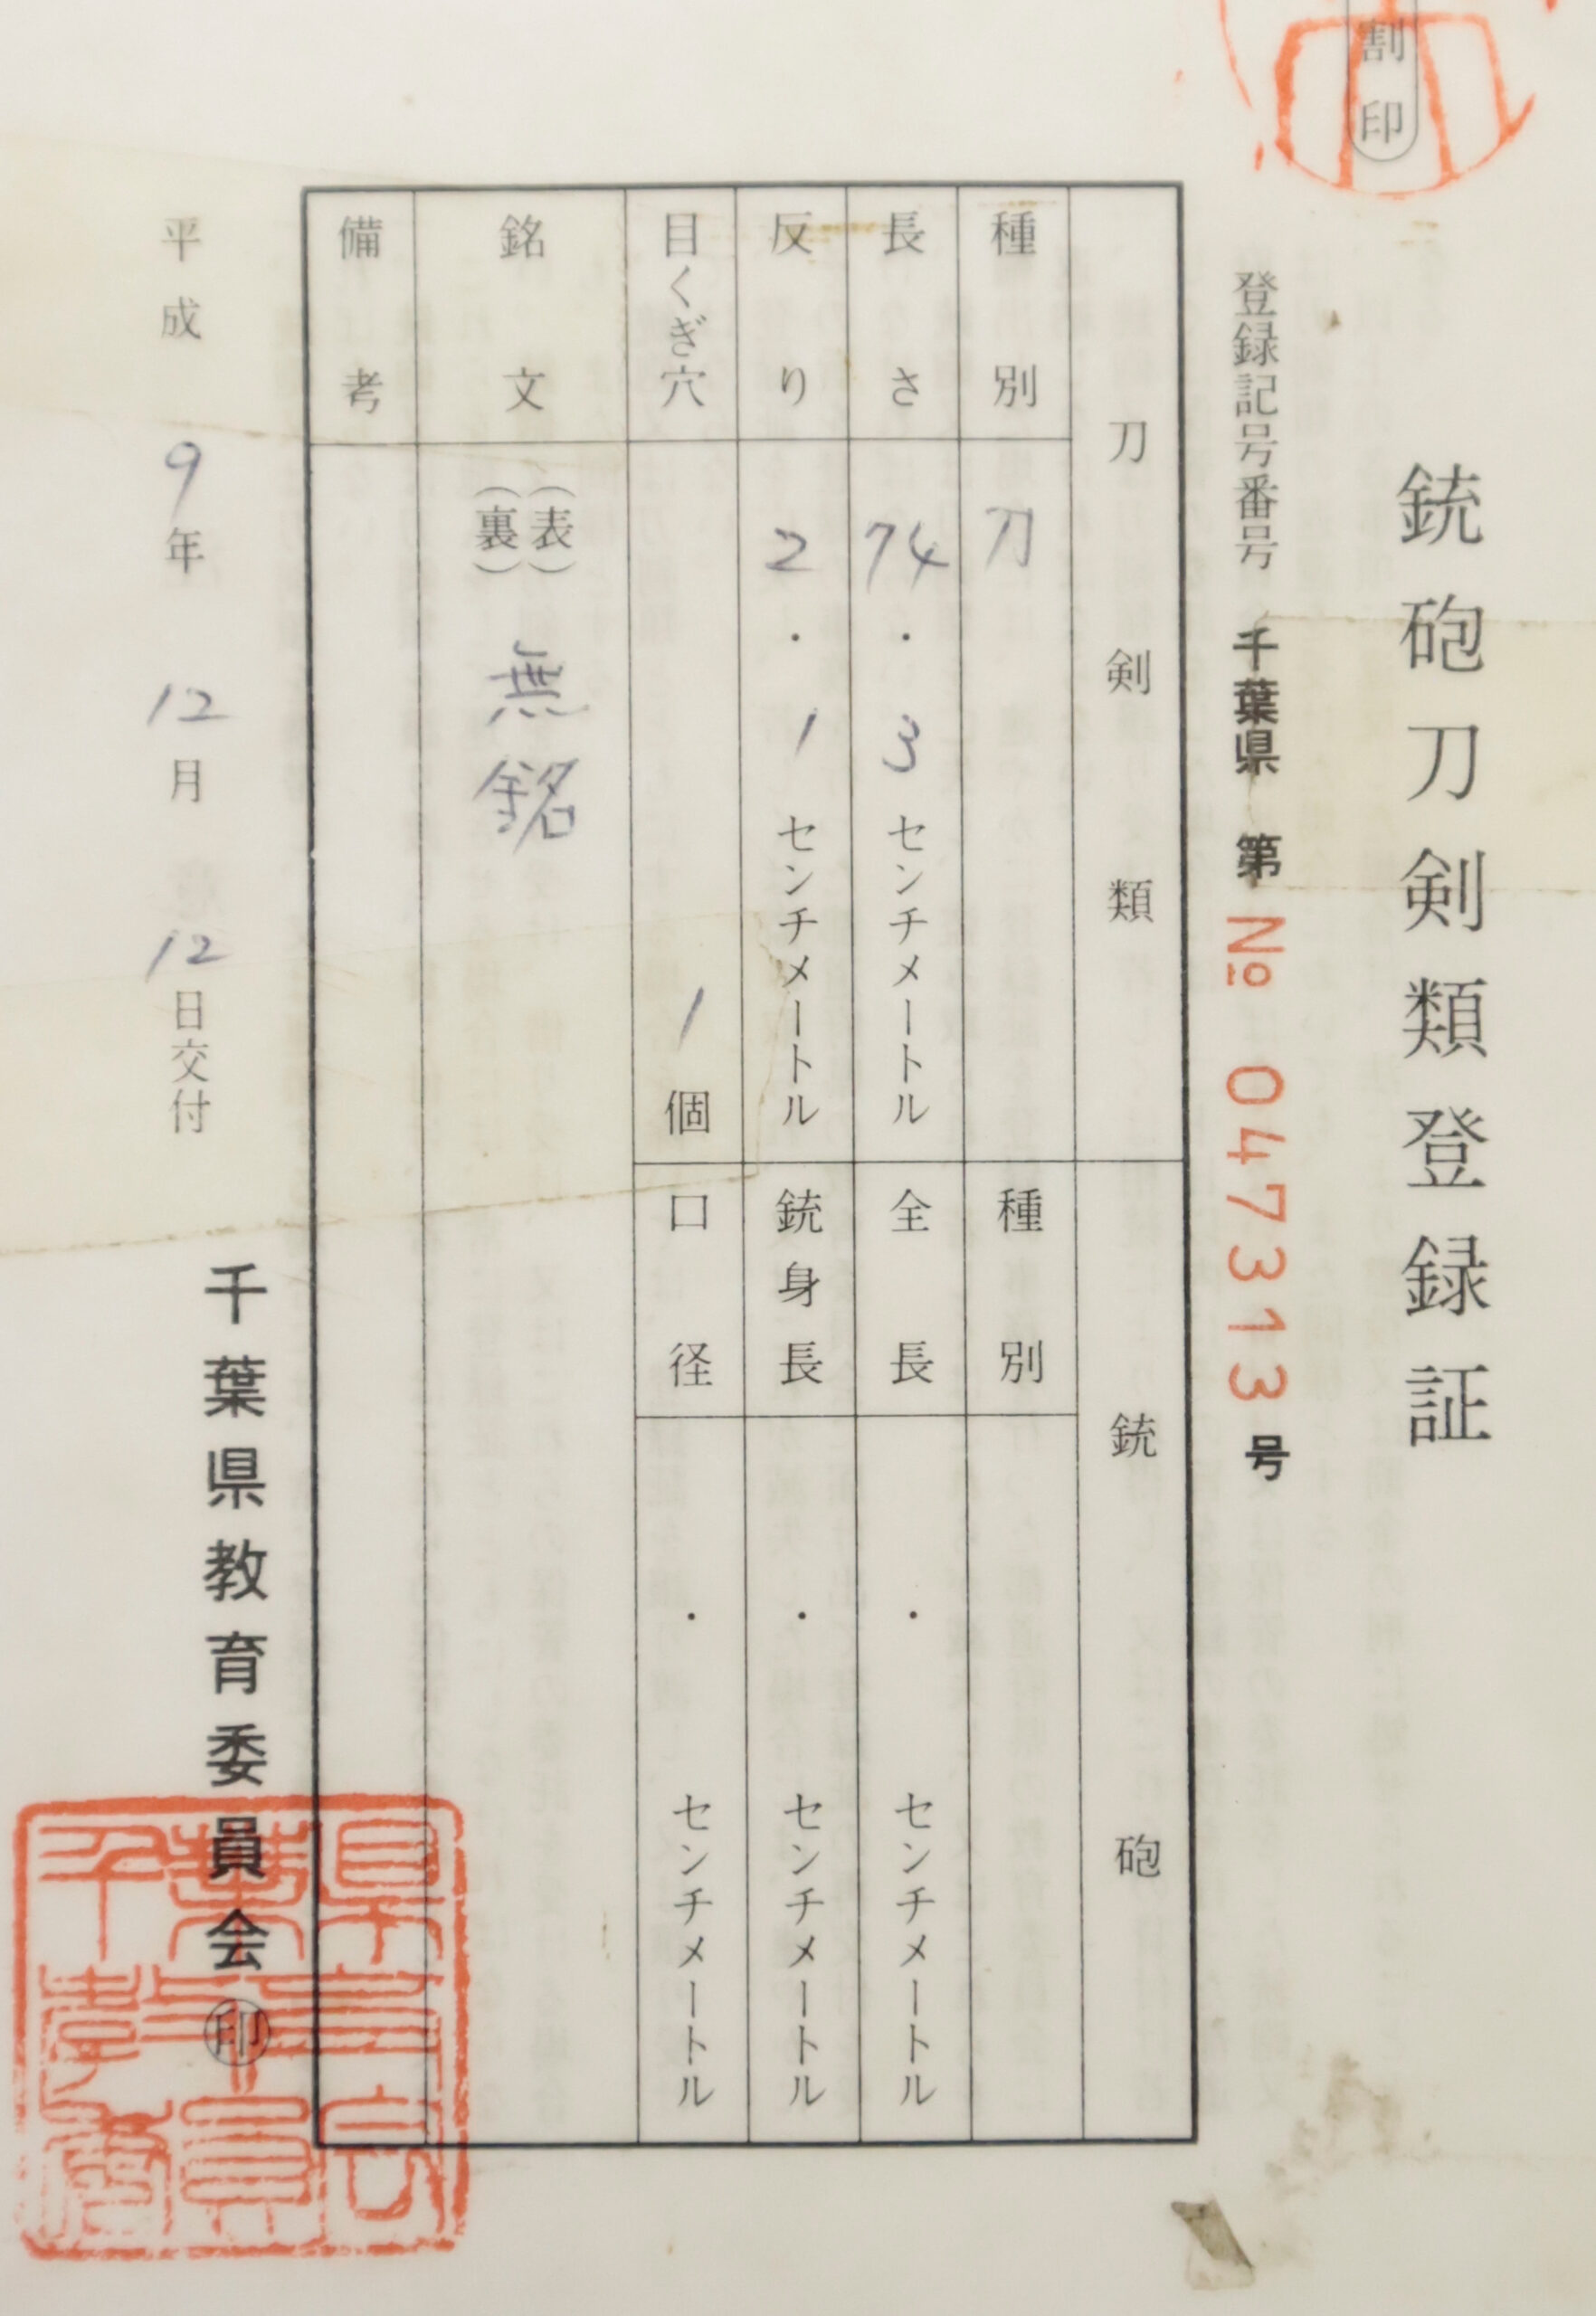 割印
銃砲刀剣類登録証
登録記号番号 千葉県 第 № 047313 号
刀剣類
種別 刀
長さ 74.3 センチメートル
反り 2.1 センチメートル
目くぎ穴 1 個
銃砲
種別
全長 ・ センチメートル
銃身長 ・ センチメートル
口径 ・ センチメートル
銘文 (表)
(裏) 無銘
備考
平成 9年 12月 12日交付
千葉県教育委員会 ㊞